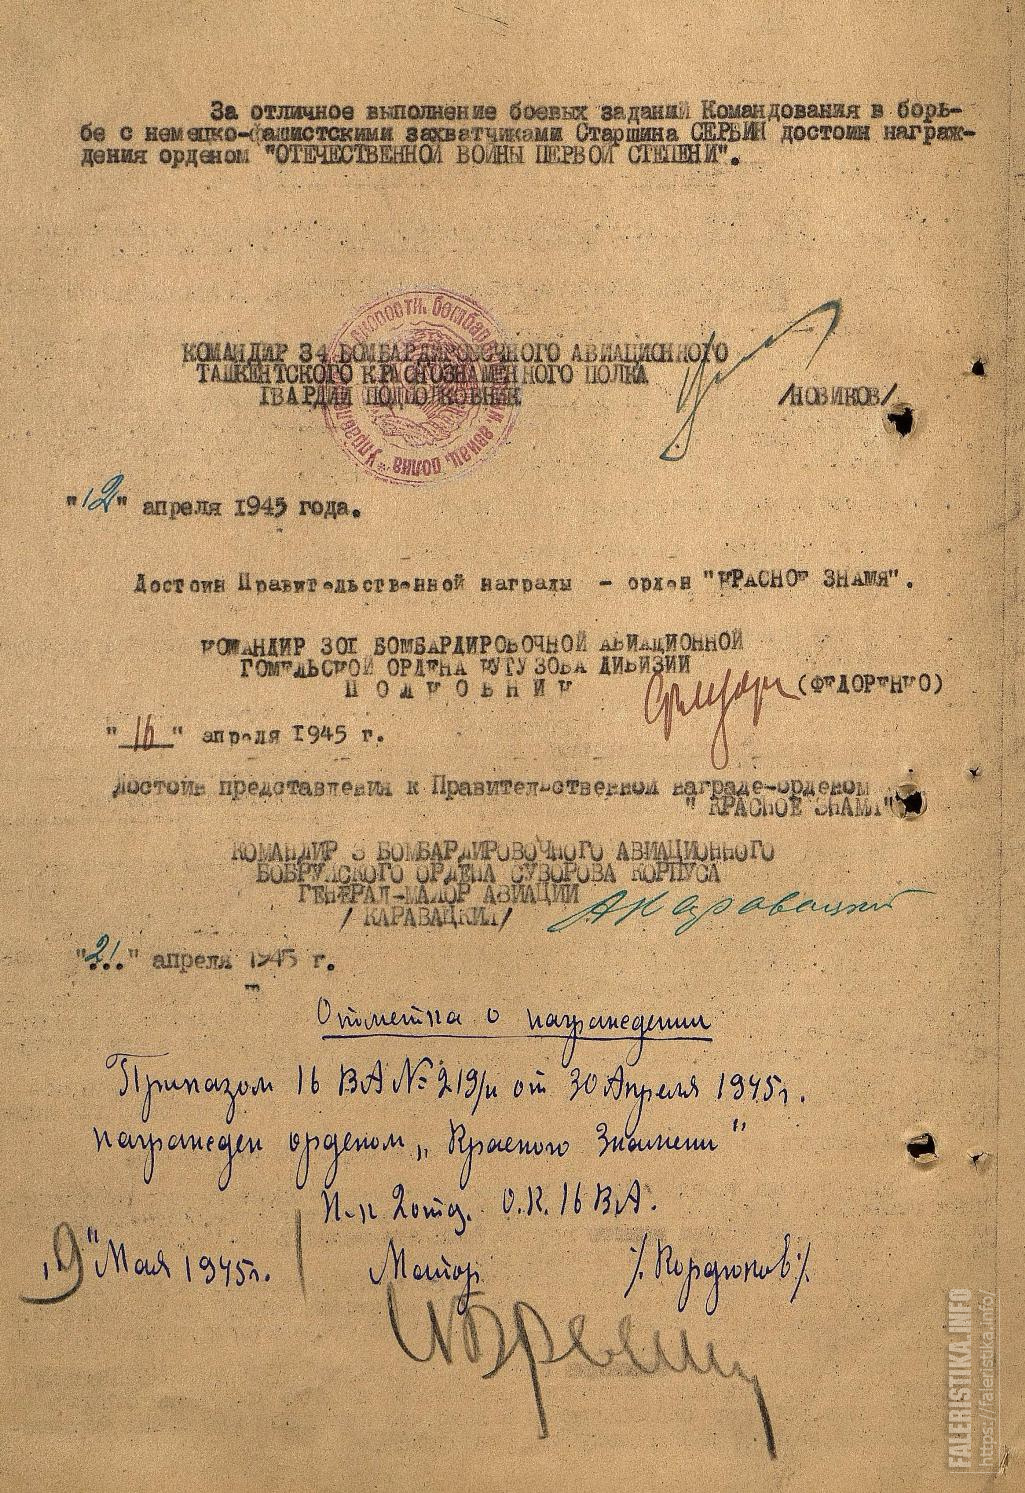 За отличное выполнение боевых заданий Командования в борь-
бе с немецко-фашистскими захватчиками Старшина СЕРБИН достоин награж-
дения орденом "ОТЕЧЕСТВЕННОЙ ВОЙНЫ ПЕРВОЙ СТЕПЕНИ".
КОМАНДИР 34 БОМБАРДИРОВОЧНОГО АВИАЦИОННОГО
ТАШКЕНТСКОГО КРАСНОЗНАМЕННОГО ПОЛКА
ГВАРДИИ ПОДПОЛКОВНИК
/НОВИКОВ/
"12" апреля 1945 года.
Достоин Правительственной награды - орден "КРАСНОЕ ЗНАМЯ".
КОМАНДИР 301 БОМБАРДИРОВОЧНОЙ АВИАЦИОННОЙ
ГОМЕЛЬСКОЙ ОРДЕНА КУТУЗОВА ДИВИЗИИ
ПОЛКОВНИК
(ФЕДОРЕНКО)
"16" апреля 1945 г.
Достоин представления к Правительственной награде-орденом
"КРАСНОЕ ЗНАМЯ"
КОМАНДИР 3 БОМБАРДИРОВОЧНОГО АВИАЦИОННОГО
БОБРУЙСКОГО ОРДЕНА СУВОРОВА КОРПУСА
ГЕНЕРАЛ-МАЙОР АВИАЦИИ
/КАРАВАЦКИЙ/
АКаравацкий
"21" апреля 1945 г.
Отметка о награждении
Приказом 16 ВА № 219/н от 30 Апреля 1945г.
награжден орденом „Красного Знамени"
Н-к 2 отд. О.К. 16 ВА.
„9" Мая 1945г. Майор /.Кордюков./
FALERISTIKA.INFO
https://faleristika.info/